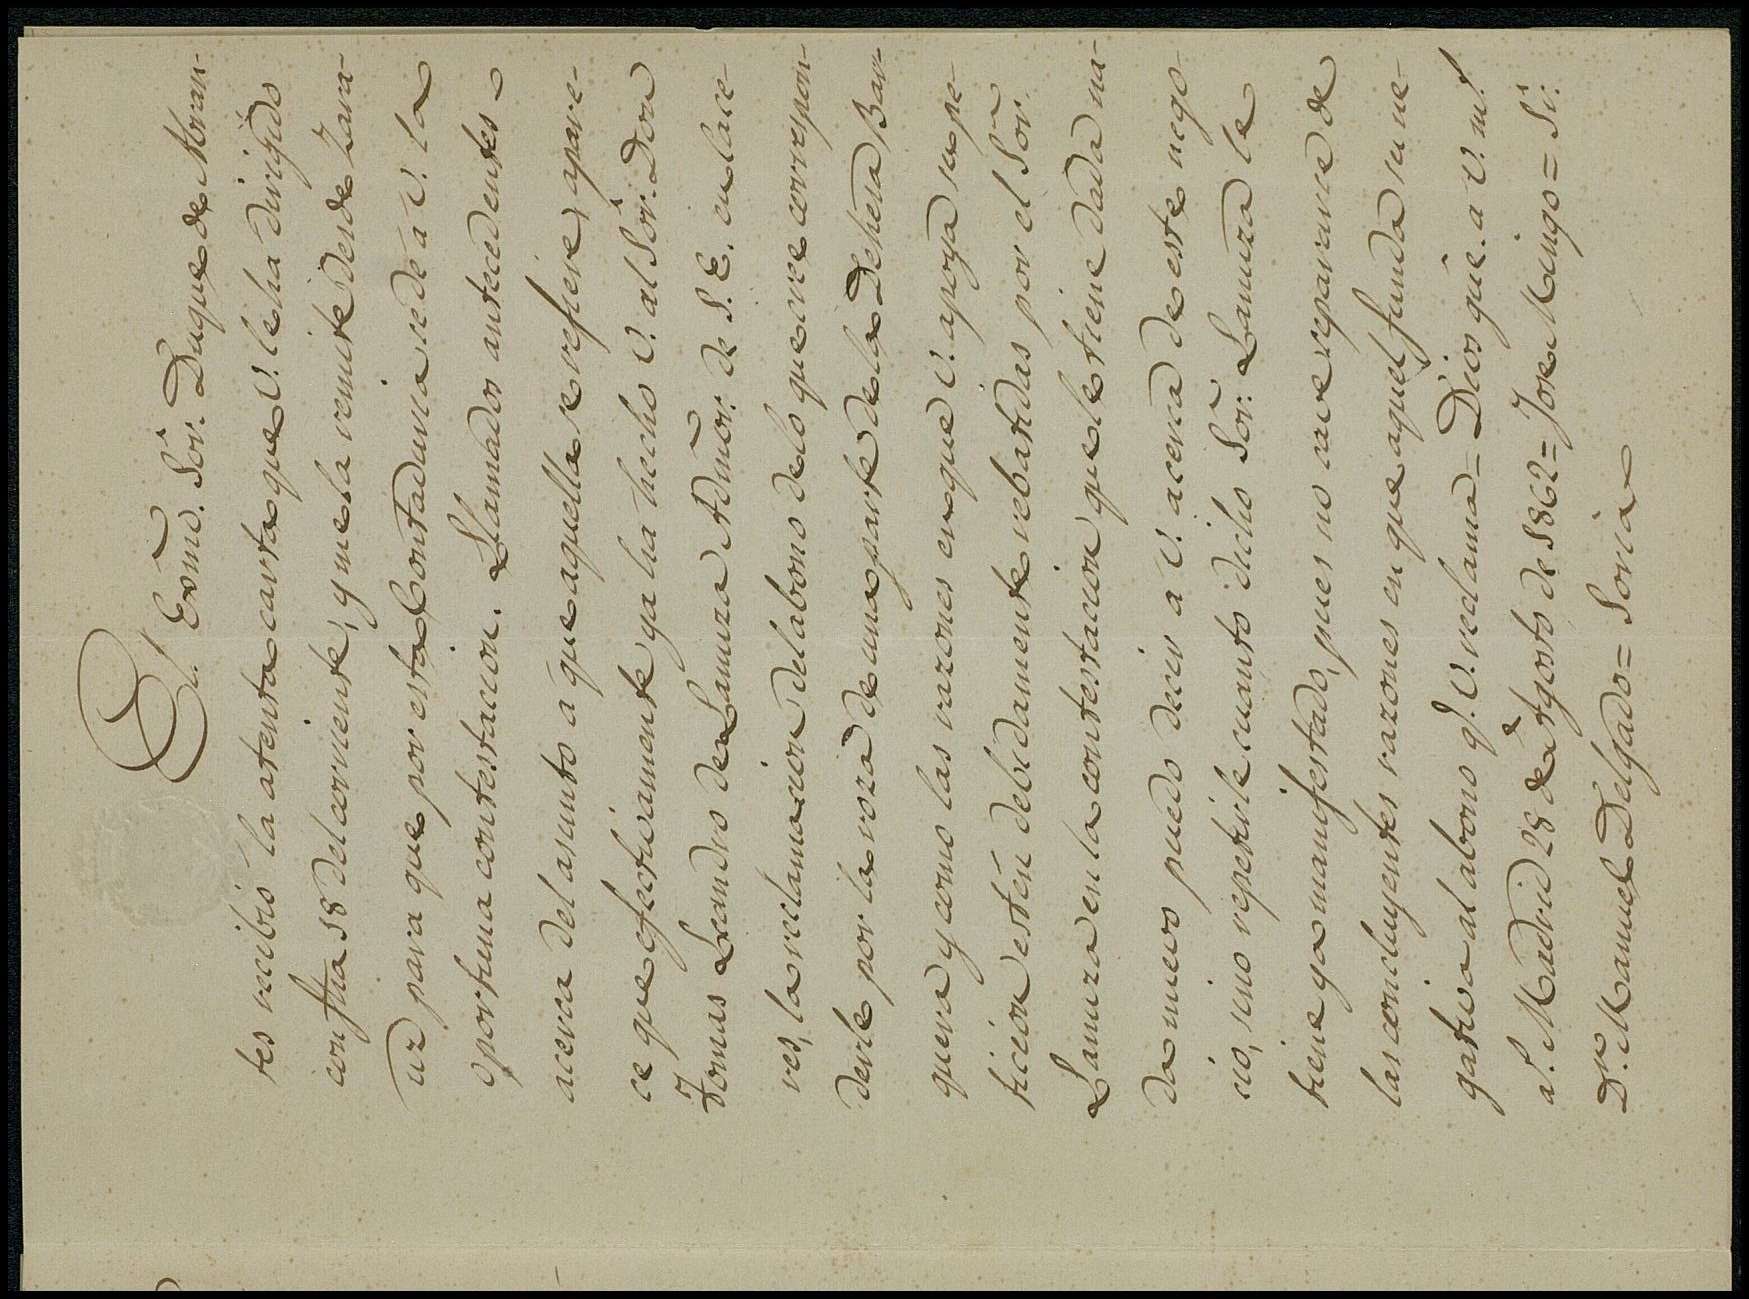 El Exmô. Sôr. Duque de Abran-
tes recibió la atenta carta que V. le ha dirigido
con fha 18 del corriente, y me la remite desde Zara-
uz para que por esta Contaduria se dé á V. la
oportuna contestacion. Llamados antecedentes
acerca del asunto á que aquella se refiere, apare-
ce que efectivamente ya ha hecho V. al Sôr. Don
Tomas Leandro de Lanuza Admôr. de S. E. en Cace-
res, la reclamacion del abono de lo que cree correspon-
derle por la roza de una parte de la Dehesa Bar-
quera y como las razones en que V. apoya su pe-
ticion estén debidamente rebatidas por el Sôr.
Lanuza en la contestacion que le tiene dada na-
da nuevo puedo decir á V. acerca de este nego-
cio, sino repetirle cuanto dicho Sôr. Lanuza le
tiene ya manifestado, pues no cave separarse de
las concluyentes razones en que aquel funda su ne-
gativa al abono q. V. reclama = Dios gûe. a V. m.s
a.s Madrid 28 de Agosto de 1862 = Jose Maingo = Sr.
D.n Manuel Delgado = Soria